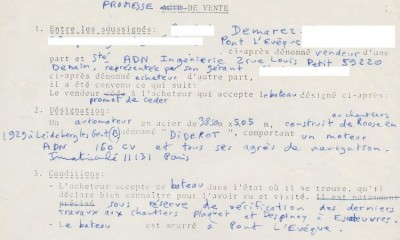 PROMESSE ACTE DE VENTE
1. Entre les soussignés:
Demarez.
Pont L'Evêque
ci-après dénommé vendeur d'une
part et Sté ADN Ingénierie 2 rue Louis Petit 59220
Denain, représentée par son gérant
ci-après dénommé acheteur d'autre part,
il a été convenu ce qui suit:
Le vendeur à l'acheteur qui accepte le bateau désigné ci-après:
promet de céder
2. Désignation:
aux chantiers
Un automoteur en acier de 38,50 x 5,05 m, construit de Roose en
1929 à Leideberg les Gent (B) "DIDEROT", comportant un moteur
ADN 160 CV et tous ses agrès de navigation.
Immatriculé 11131 Paris
3. Conditions:
- L'acheteur accepte ce bateau dans l'état où il se trouve, qu'il
déclare bien connaître pour l'avoir vu et visité. Il est notamment
précisé sous réserve de vérification des derniers
travaux aux chantiers Plaquet et Despinoy à Escauoeuvres.
- Le bateau est amarré à Pont L'Evêque.